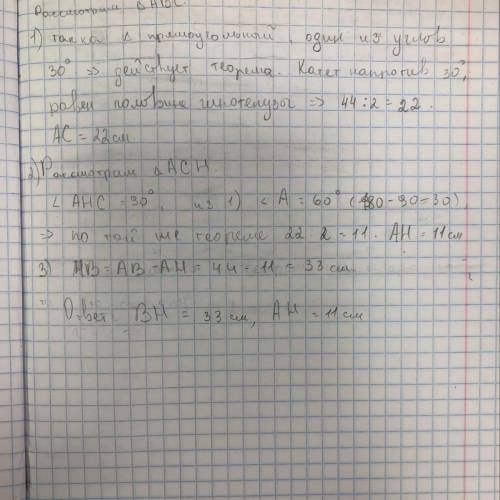 Рассмотрим △ABC.
1) так как △ прямоугольный, один из углов
30° => действует теорема. Катет напротив 30°,
равен половине гипотенузы => 44:2=22.
AC = 22см
2) Рассмотрим △ACH.
∠ AHC = 30°, из 1) ∠ A = 60° (180-90=30),
=> по той же теореме 22:2=11. AH=11см
3) HB = AB - AH = 44 - 11 = 33 см.
Ответ: BH = 33 см, AH = 11 см